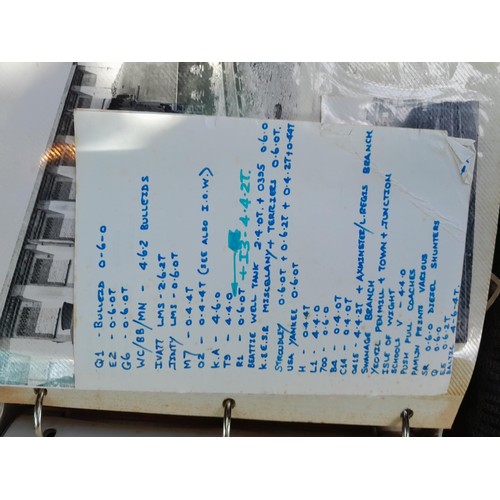 Q1 - BULLEID 0-6-0
E2 - 0.6.0T
G6 - 0.6.0T
WC/BB/MN - 4.6.2 BULLEIDS
IVATT LMS - 2.6.2T
JINTY LMS - 0.6.0T
M7 - 0.4.4T
O2 - 0.4.4T (SEE ALSO I.O.W.)
K.A - 4.6.0
T9 - 4.4.0
P2 0.6.0T + I3 - 4.4.2T.
BEATTIE WELL TANK 2.4.0T. + 0395 0.6.0
K.E.S.R MISCELLANY + TERRIERS 0.6.0T.
STROUDLEY 0.6.0T + 0.6.2T + 0.4.2T + 0.4.4T
USA YANKEE 0.6.0T
H - 0.4.4T
L1 - 4.4.0
700 - 0.6.0
B4 - 0.4.0T
C14 - 0.4.0T
0415 - 4.4.2T + AXMINSTER/L.REGIS BRANCH
SWANAGE BRANCH
YEOVIL PEN MILL + TOWN + JUNCTION
ISLE OF WIGHT
SCHOOLS V - 4.4.0
PUSH PULL COACHES
PAMLIN PRINTS VARIOUS
SR 0.6.0 DIESEL SHUNTERS
Q 0.6.0
E5 0.6.2T.
4-6-4T.